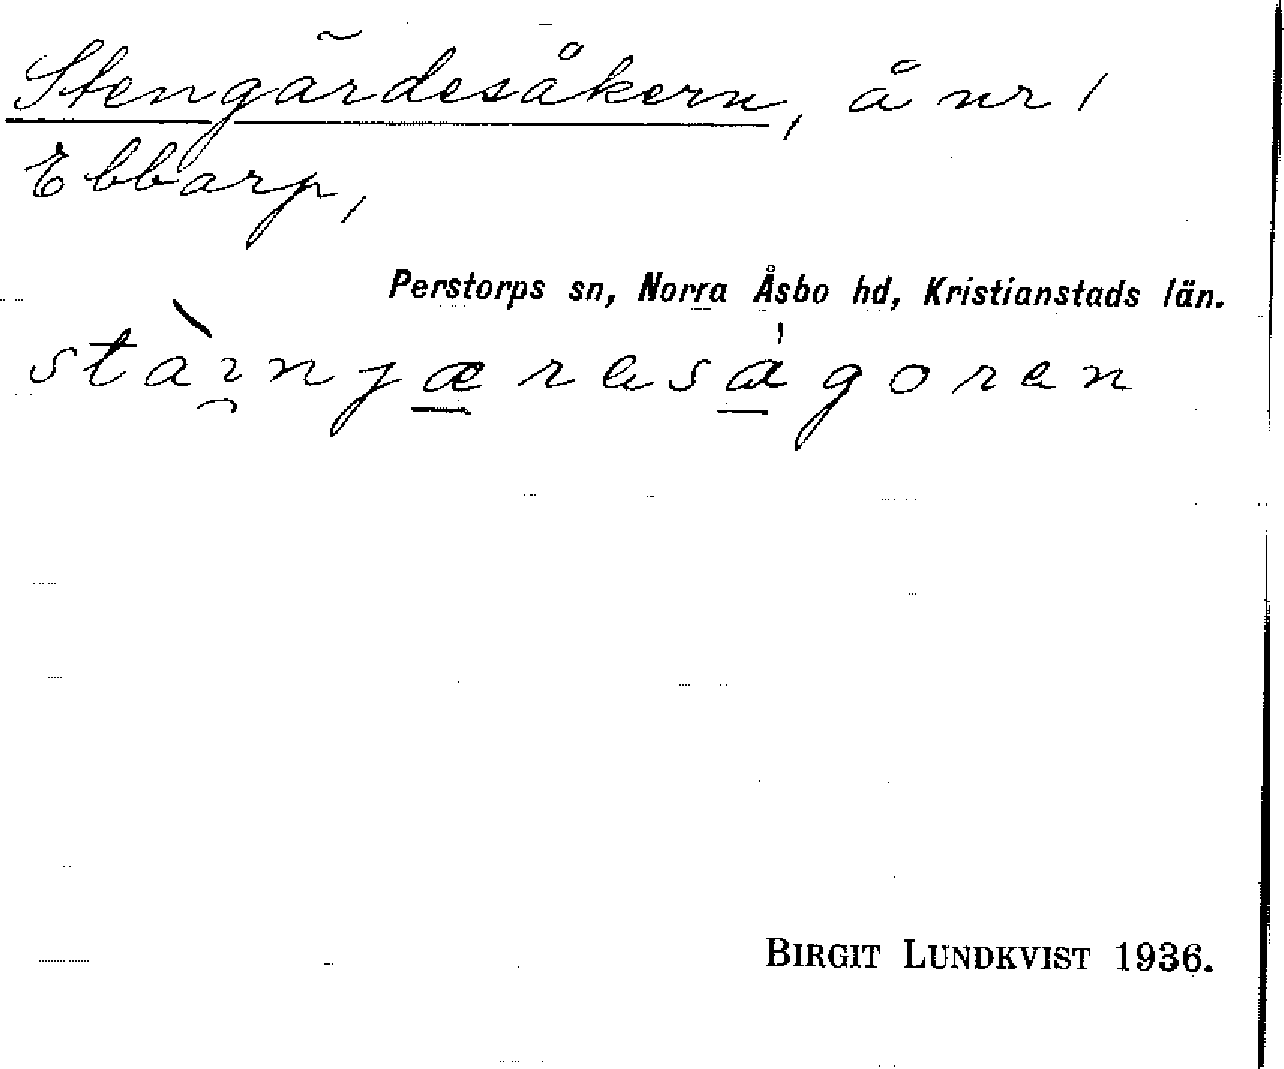 Stengärdesåkern, å nr 1
Ebbarp,
Perstorps sn, Norra Åsbo hd, Kristianstads län.
stàɪ̯njæresa̍goren
BIRGIT LUNDKVIST 1936.